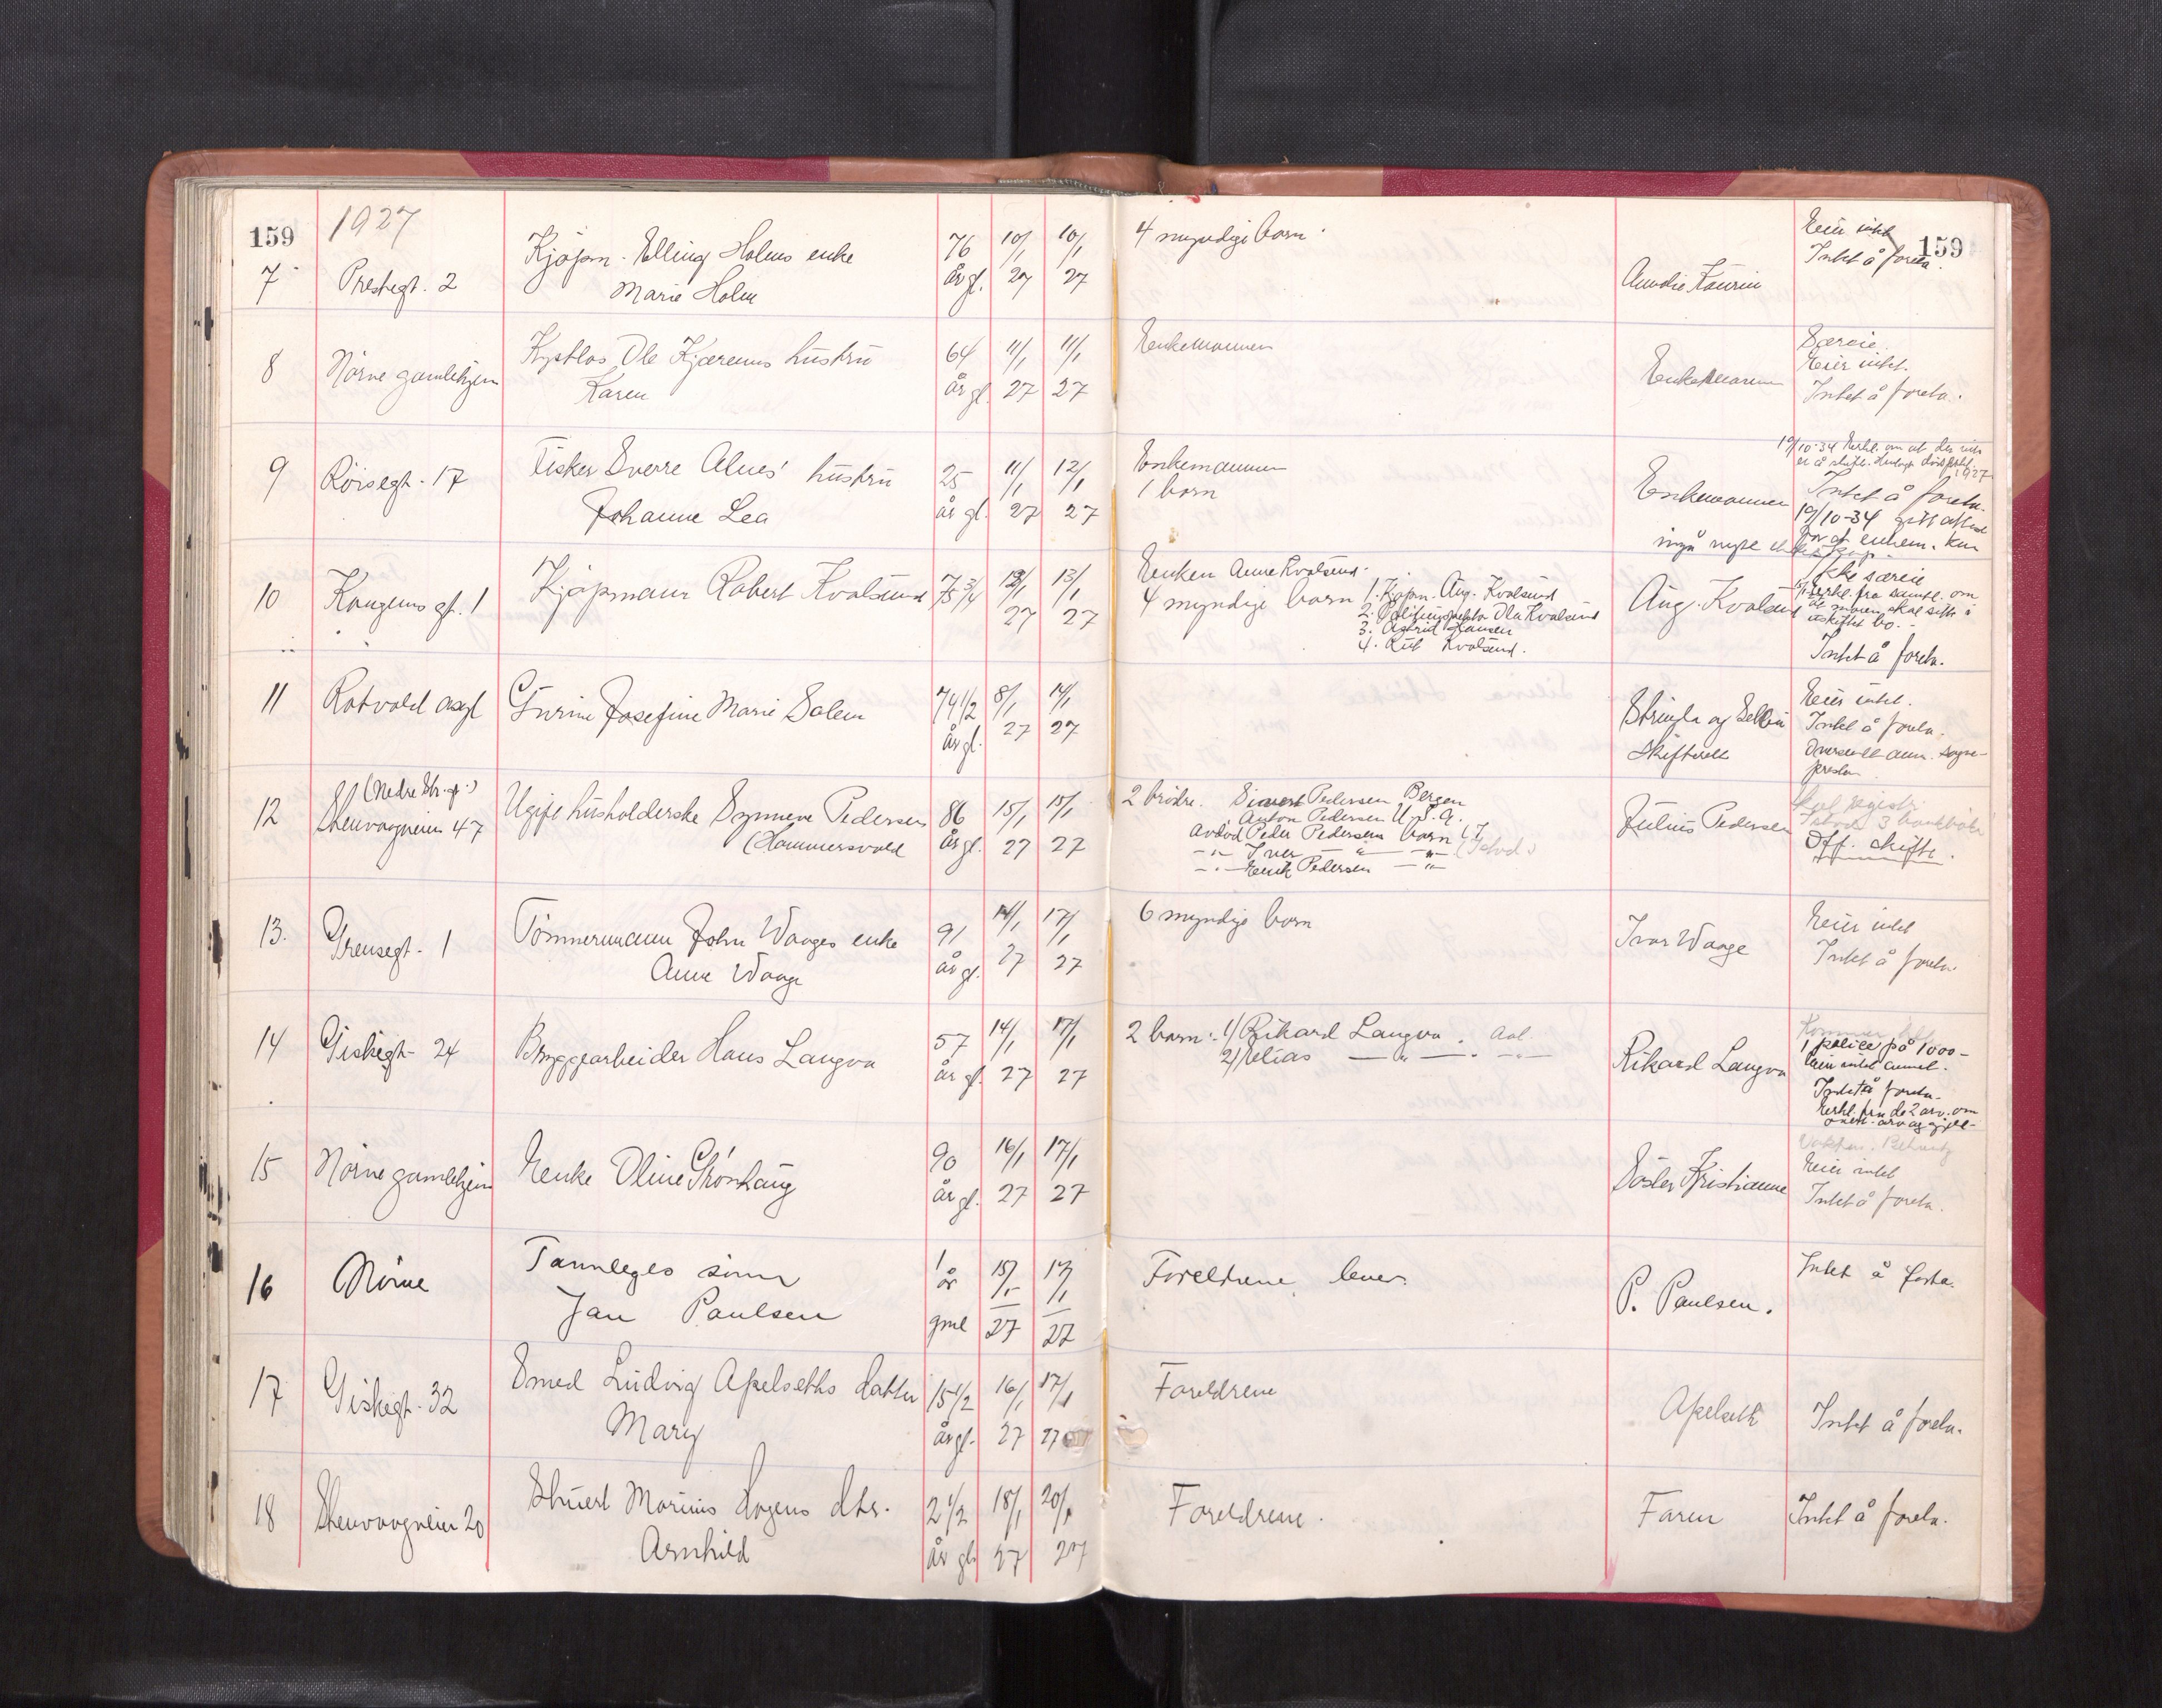 159
1927
159
7
Prestegt. 2
Kjøpm. Elling Holms enke
Marie Holm
76
år gl.
10/1
27
10/1
27
4 myndige barn
Eier intet
Intet å foreta.
8
Nörve gamlehjem
Ole Kjærems hustru
Karen
64
år gl.
11/1
27
11/1
27
Enkemannen
Enkemannen
Særeie.
Eier intet.
Intet å foreta.
9
Röisegt. 17
Fisker Sverre Alnes' hustru
Johanne Lea
25
år gl.
11/1
27
12/1
27
Enkemannen
1 barn
Enkemannen
19/10-34 Erkl. om at der intet
er å skifte.
1927
Intet å foreta.
19/10-34 gitt attest
for at enkem. kan
inngå nytt ekteskap.
10
Kongens gt. 1
Kjøpmann Robert Kvalsund
75 3/4
13/1
27
13/1
27
Enken Anne Kvalsund.
4 myndige barn 1. Kjøpm. Aug. Kvalsund
2. Politiinspektör Ola Kvalsund
3. Astrid Hansen
4. Rut Kvalsund.
Aug. Kvalsund
Ikke særeie
Erkl. fra samtl. om
at moren skal sitte i
uskiftet bo.
Intet å foreta.
11
Rotvold asyl
Gurine Josefine Marie Salen
74 1/2
år gl.
8/1
27
14/1
27
Skifterett
Eier intet.
Intet å foreta.
Oversendt anm. sogne-
presten
12
(Nedre Str. gt.)
Stenvaagveien 47
Ugift husholderske Synneve Pedersen
(Hammersvold
86
år gl.
15/1
27
15/1
27
2 brödre. Sivert Pedersen Bergen
Anton Pedersen U.S.A.
Avdöd Peder Pedersens barn
-"- Iver -"- -"-
-"- Erik Pedersen -"-
Julius Pedersen
3 bankböker
Off. skifte.
13.
Grensegt. 1
Tömmermann John Waages enke
Anne Waage
91
år gl.
14/1
27
17/1
27
6 myndige barn
Ivar Waage
Eier intet
Intet å foreta.
14
Giskegt. 24
Bryggearbeider Hans Langva
57
år gl.
14/1
27
17/1
27
2 barn: 1/ Rikard Langva. Aal.
2/ Elias -"- -"-
Rikard Langva
1 polise på 1000 -
Eier intet annet.
Intet å foreta.
Erkl. fra de 2 arv. om
overt. arv og gjeld
15
Nörve gamlehjem
Enke Oline Grönhaug
90
år gl.
16/1
27
17/1
27
Söster Kristianne
Eier intet
Intet å foreta.
16
Nörve
Tannleges sönn
Jan Paulsen
1
år
gml
15/1
27
17/1
27
Foreldrene lever.
P. Paulsen.
Intet å foreta.
17
Giskegt. 32
Smed Ludvig Apelseths datter
Mary
15 1/2
år gl.
16/1
27
17/1
27
Foreldrene
Apelseth
Intet å foreta.
18
Stenvaagveien 20
Stuert Marius Hagens dtr.
Arnhild
2 1/2
år gl.
18/1
27
20/1
27
Foreldrene.
Faren
Intet å foreta.